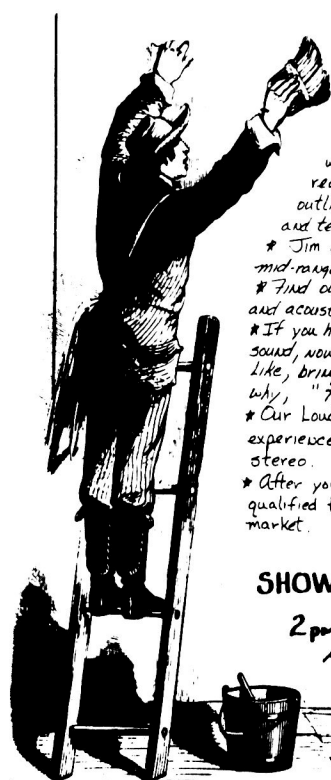 outli
and te
* Jim
mid-range
* Find ou
and acoust
* If you h
sound, now
like, brin
why, "
* Our Lou
experience
stereo.
* After yo
qualified t
market.
SHOW
2 pm